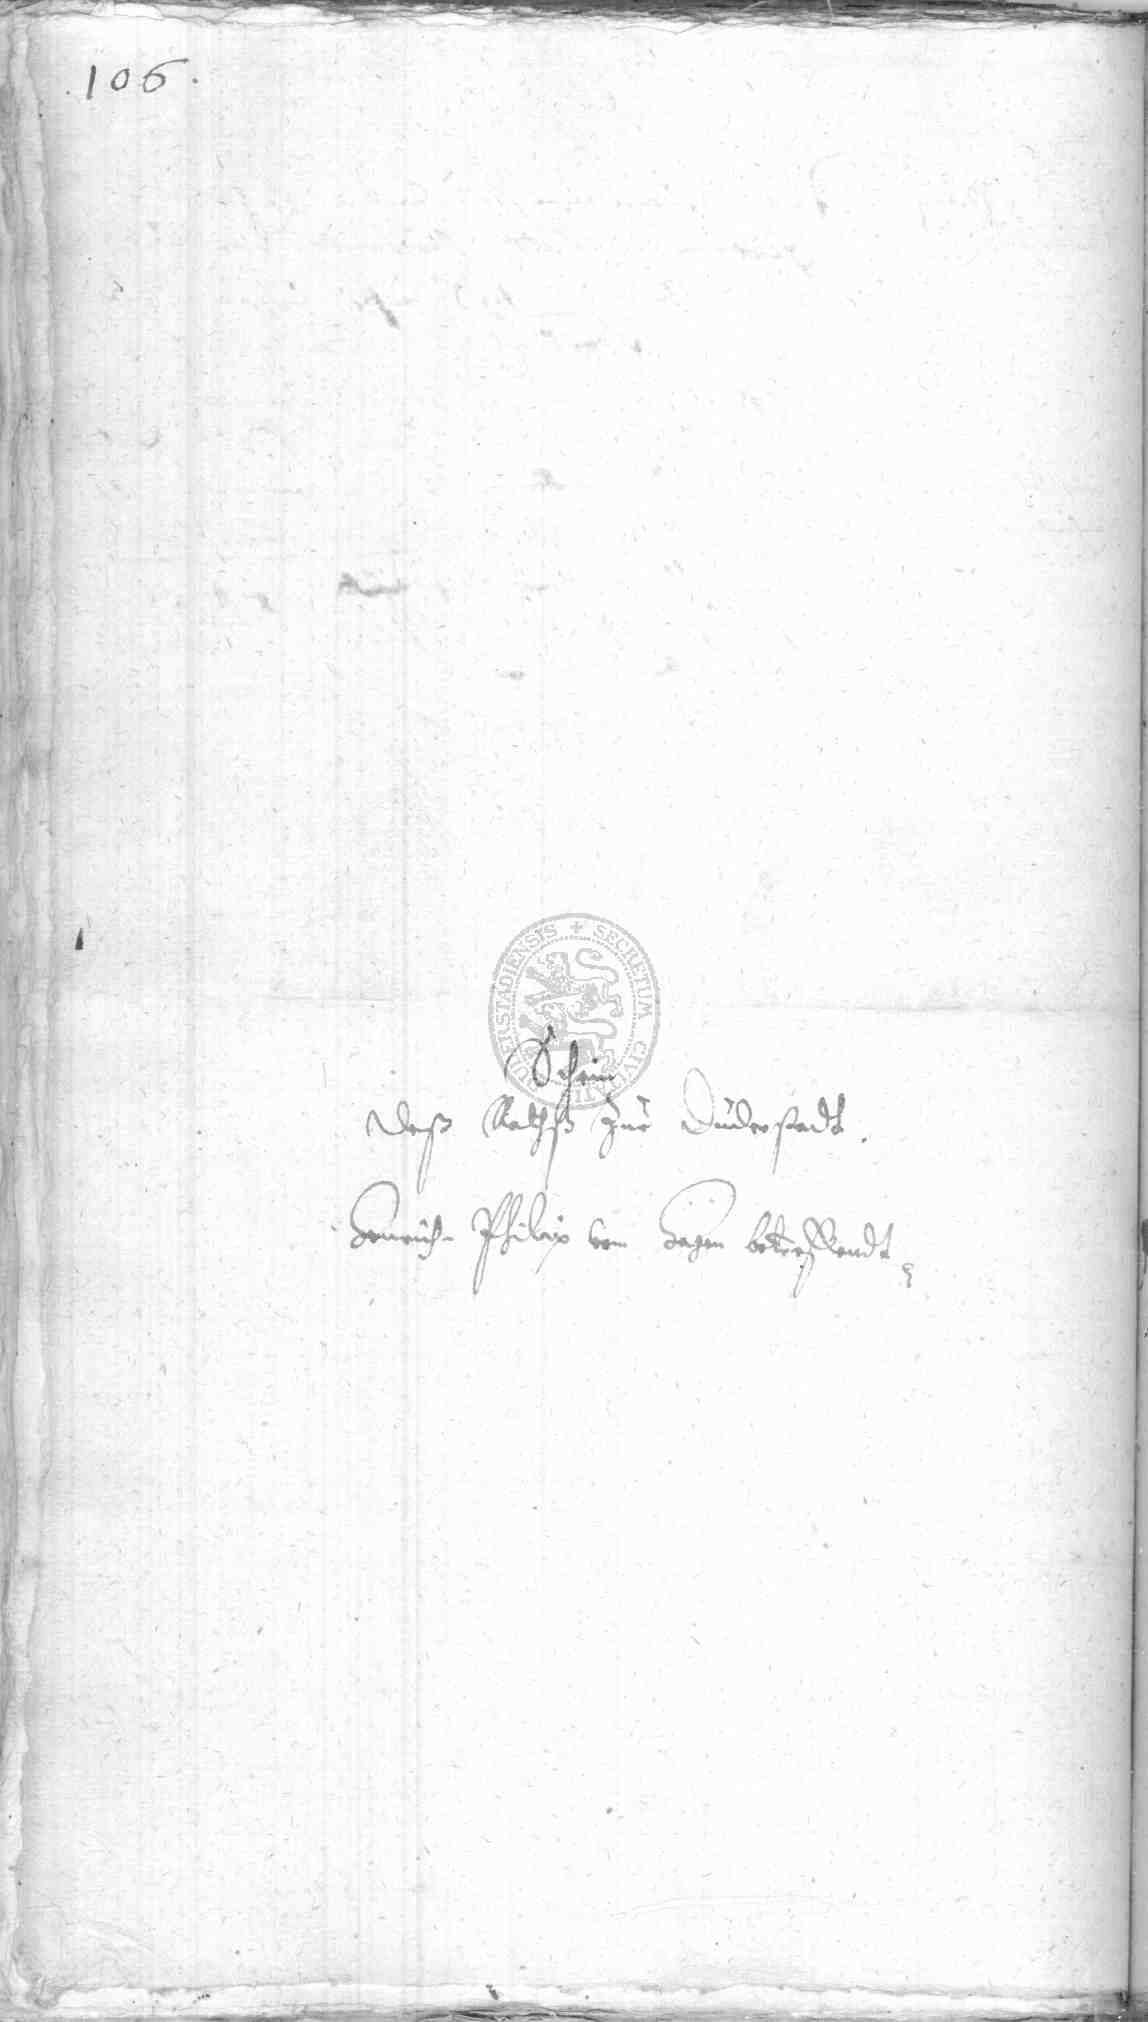 106.
SECRETUM CIVITATIS DUDERSTADIENSIS
Schein
Deß Rathß Zur Duderstadt.
Henrich Philip vom Hagen betreffendt